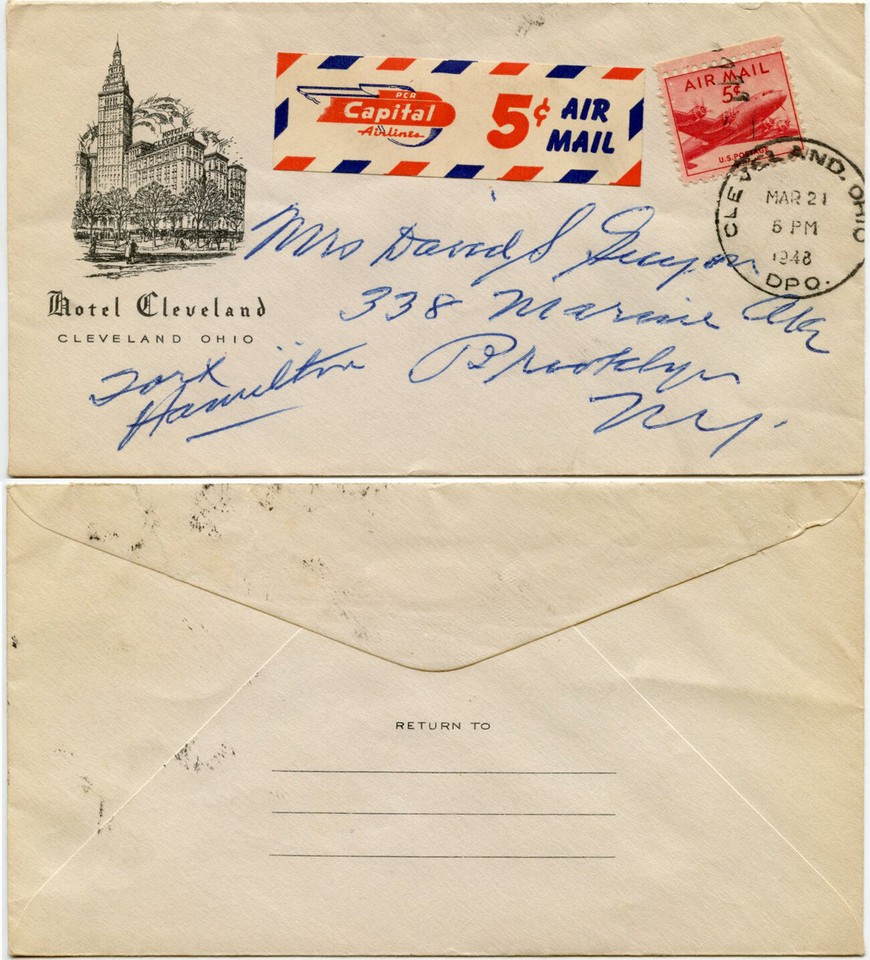 HOTEL
Hotel Cleveland
CLEVELAND OHIO
PCA
Capital
Airlines
5¢ AIR
MAIL
AIR MAIL
5¢
U.S. POSTAGE
CLEVELAND, OHIO
MAR 21
6 PM
1948
DPO.
Mrs David S Guyon
338 Marine Ave
Fort Hamilton
Brooklyn
N.Y.
RETURN TO